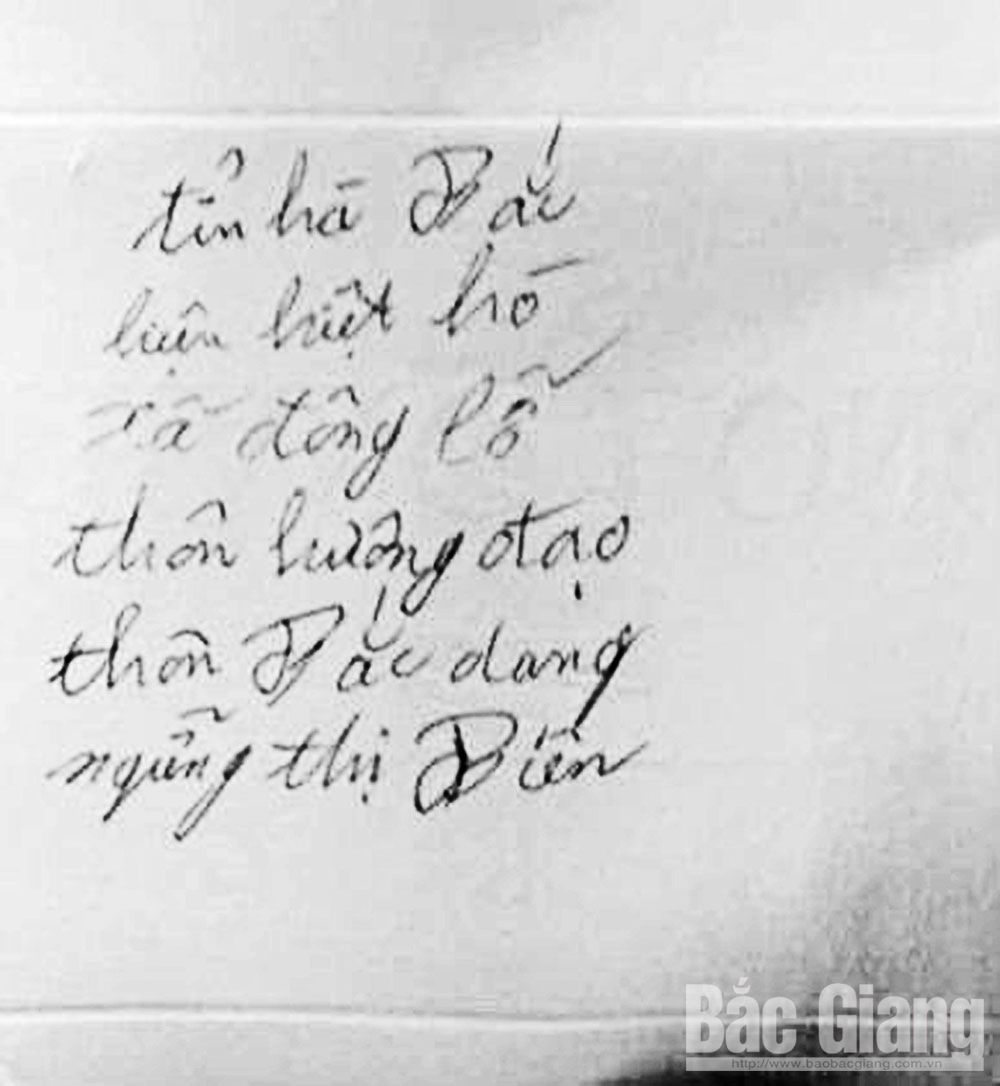 tỉn hà Bắc
huện hiệt hò
xã đông lỗ
thôn hưởng đạo
thôn Bắc dang
ngũng thị Biên
Bắc Giang
http://www.baobacgiang.com.vn